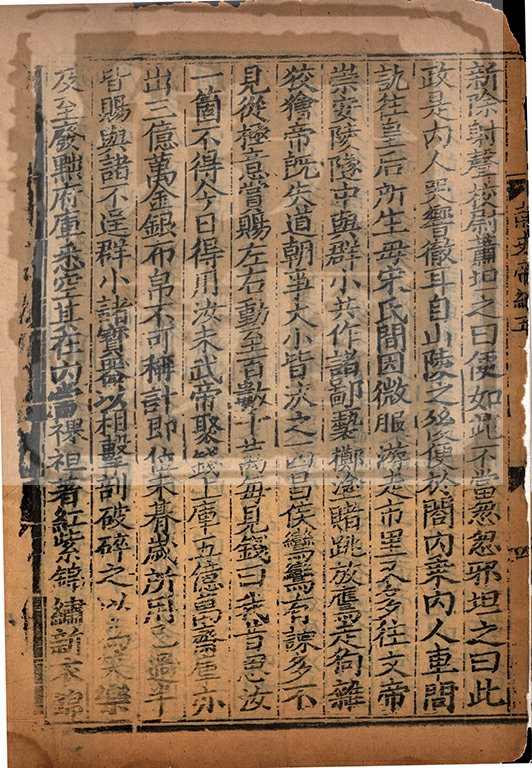 新除射聲校尉蕭坦之曰便如此不當怱怱邪坦之曰此
政是內人哭響徹耳自山陵之後便於閤內乗內人車問
訊往皇后所生毋宋氏間因微服游走市里又多往文帝
崇安陵隧中與群小共作諸鄙褻擲塗賭跳放鷹走狗雜
狡獪帝旣失道朝事大小皆决之西昌侯鸞鸞有諫多不
見從極意賞賜左右動至百數十萬每見錢曰我昔思汝
一箇不得今日得用汝未武帝聚錢上庫五億萬齋庫亦
出三億萬金銀布帛不可稱計即位未朞歲所用已過半
皆賜與諸不逞群小諸寶器以相擊剖破碎之以爲笑樂
及至廢黜府庫悉空其在內當裸袒著紅紫錦繡新衣錦